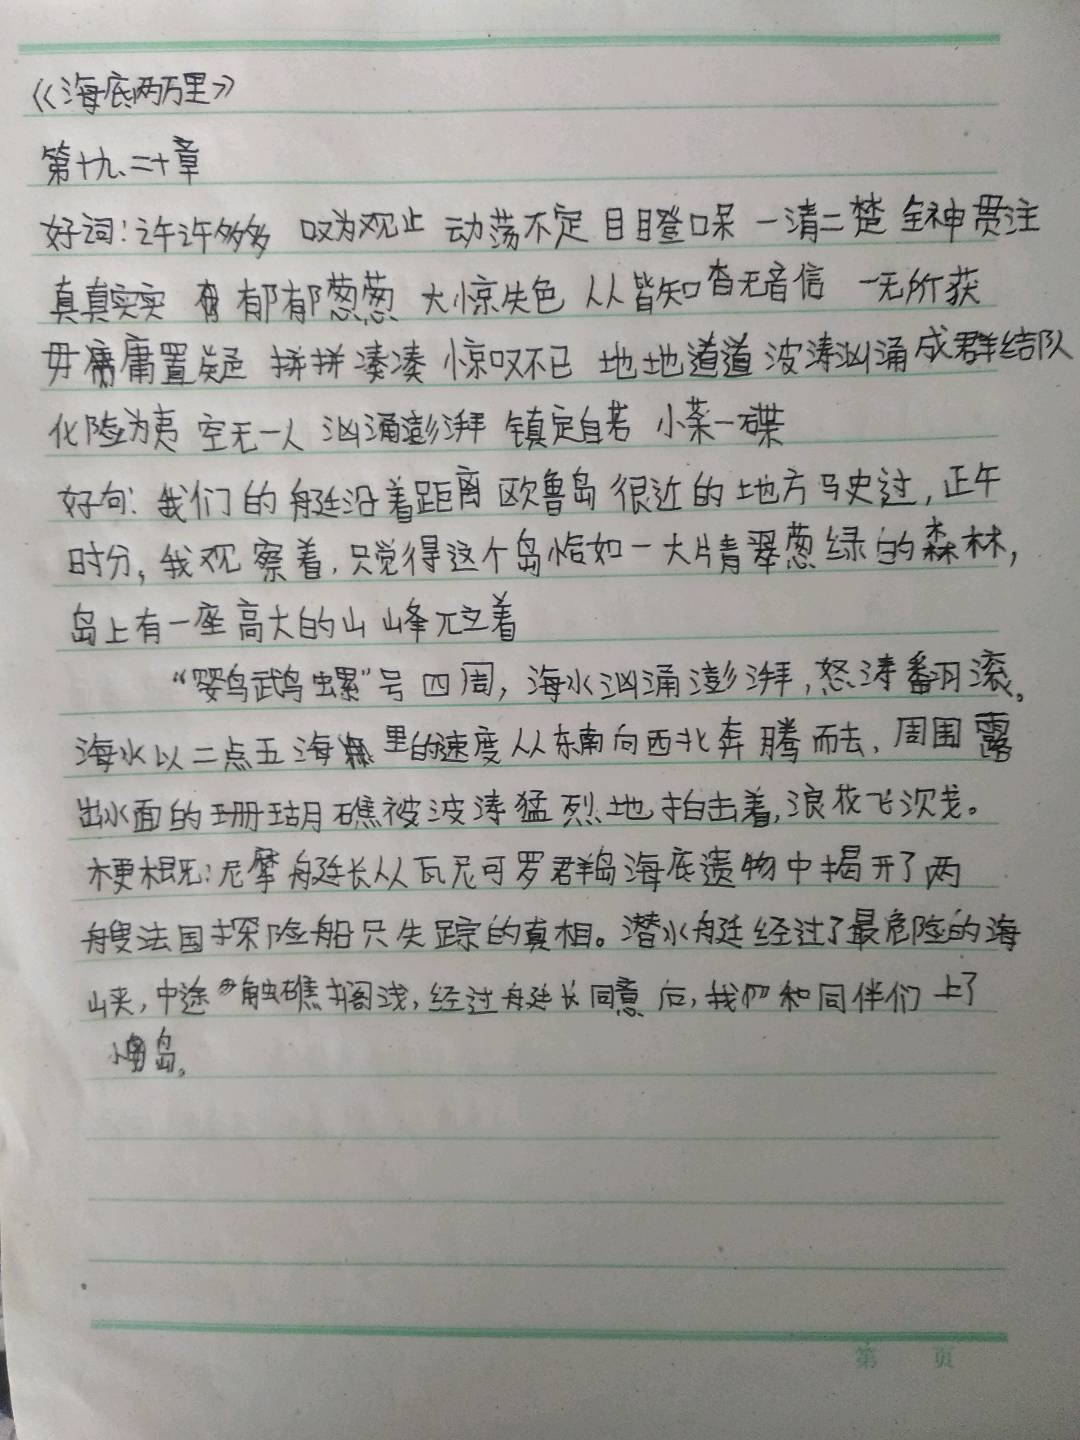 《海底两万里》
第十九、二十章
好词：许许多多 叹为观止 动荡不定 目瞪口呆 一清二楚 全神贯注
真真实实 郁郁葱葱 大惊失色 人人皆知 杳无音信 一无所获
毋庸置疑 拼拼凑凑 惊叹不已 地地道道 波涛汹涌 成群结队
化险为夷 空无一人 汹涌澎湃 镇定自若 小菜一碟
好句：我们的艇沿着距离欧鲁岛很近的地方驶过，正午
时分，我观察着，只觉得这个岛恰如一大片青翠葱绿的森林，
岛上有一座高大的山峰兀立着
“鹦鹉螺”号四周，海水汹涌澎湃，怒涛翻滚。
海水以二点五海里的速度从东南向西北奔腾而去，周围露
出水面的珊瑚礁被波涛猛烈地拍击着，浪花飞溅。
梗概：尼摩艇长从瓦尼可罗群岛海底遗物中揭开了两
艘法国探险船只失踪的真相。潜水艇经过了最危险的海
峡，中途触礁搁浅，经过艇长同意后，我和同伴们上了
小岛。
第 页